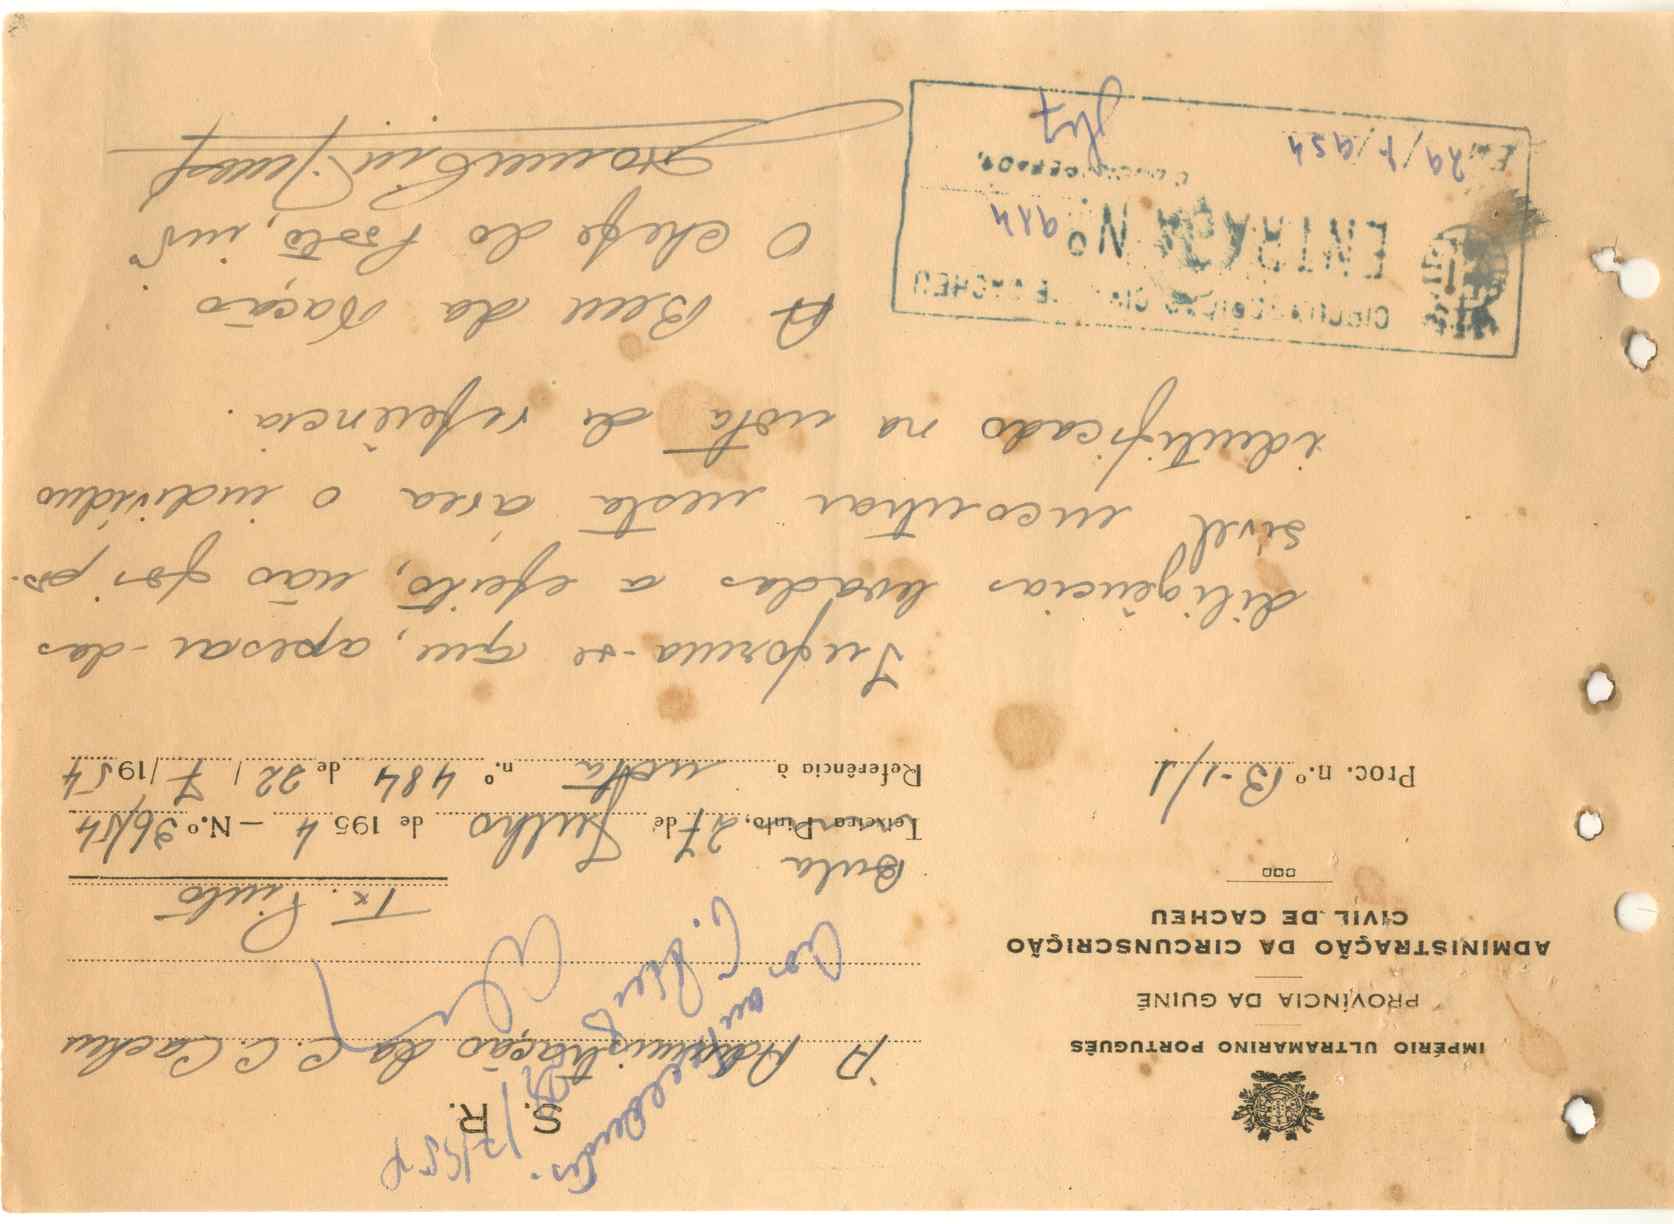 S. R.
IMPÉRIO ULTRAMARINO PORTUGUÊS
PROVÍNCIA DA GUINÉ
ADMINISTRAÇÃO DA CIRCUNSCRIÇÃO
CIVIL DE CACHEU
Proc. n.º B-1/1
À Administração da C. C. Cacheu
Tx. Pinto
Bula
Teixeira Pinto, 27 de Julho de 1954 — N.º 36/54
Referência à nota n.º 484 de 22 / 7 /1954
Informa-se que, apesar das
diligências levadas a efeito, não foi pos-
sivel encontrar nesta área o individuo
identificado na nota da referência.
A Bem da Nação
O Chefe do Posto, intº
CIRCUNSCRIÇÃO CIVIL DE CACHEU
ENTRADA N.º 914
Em 29/7/954